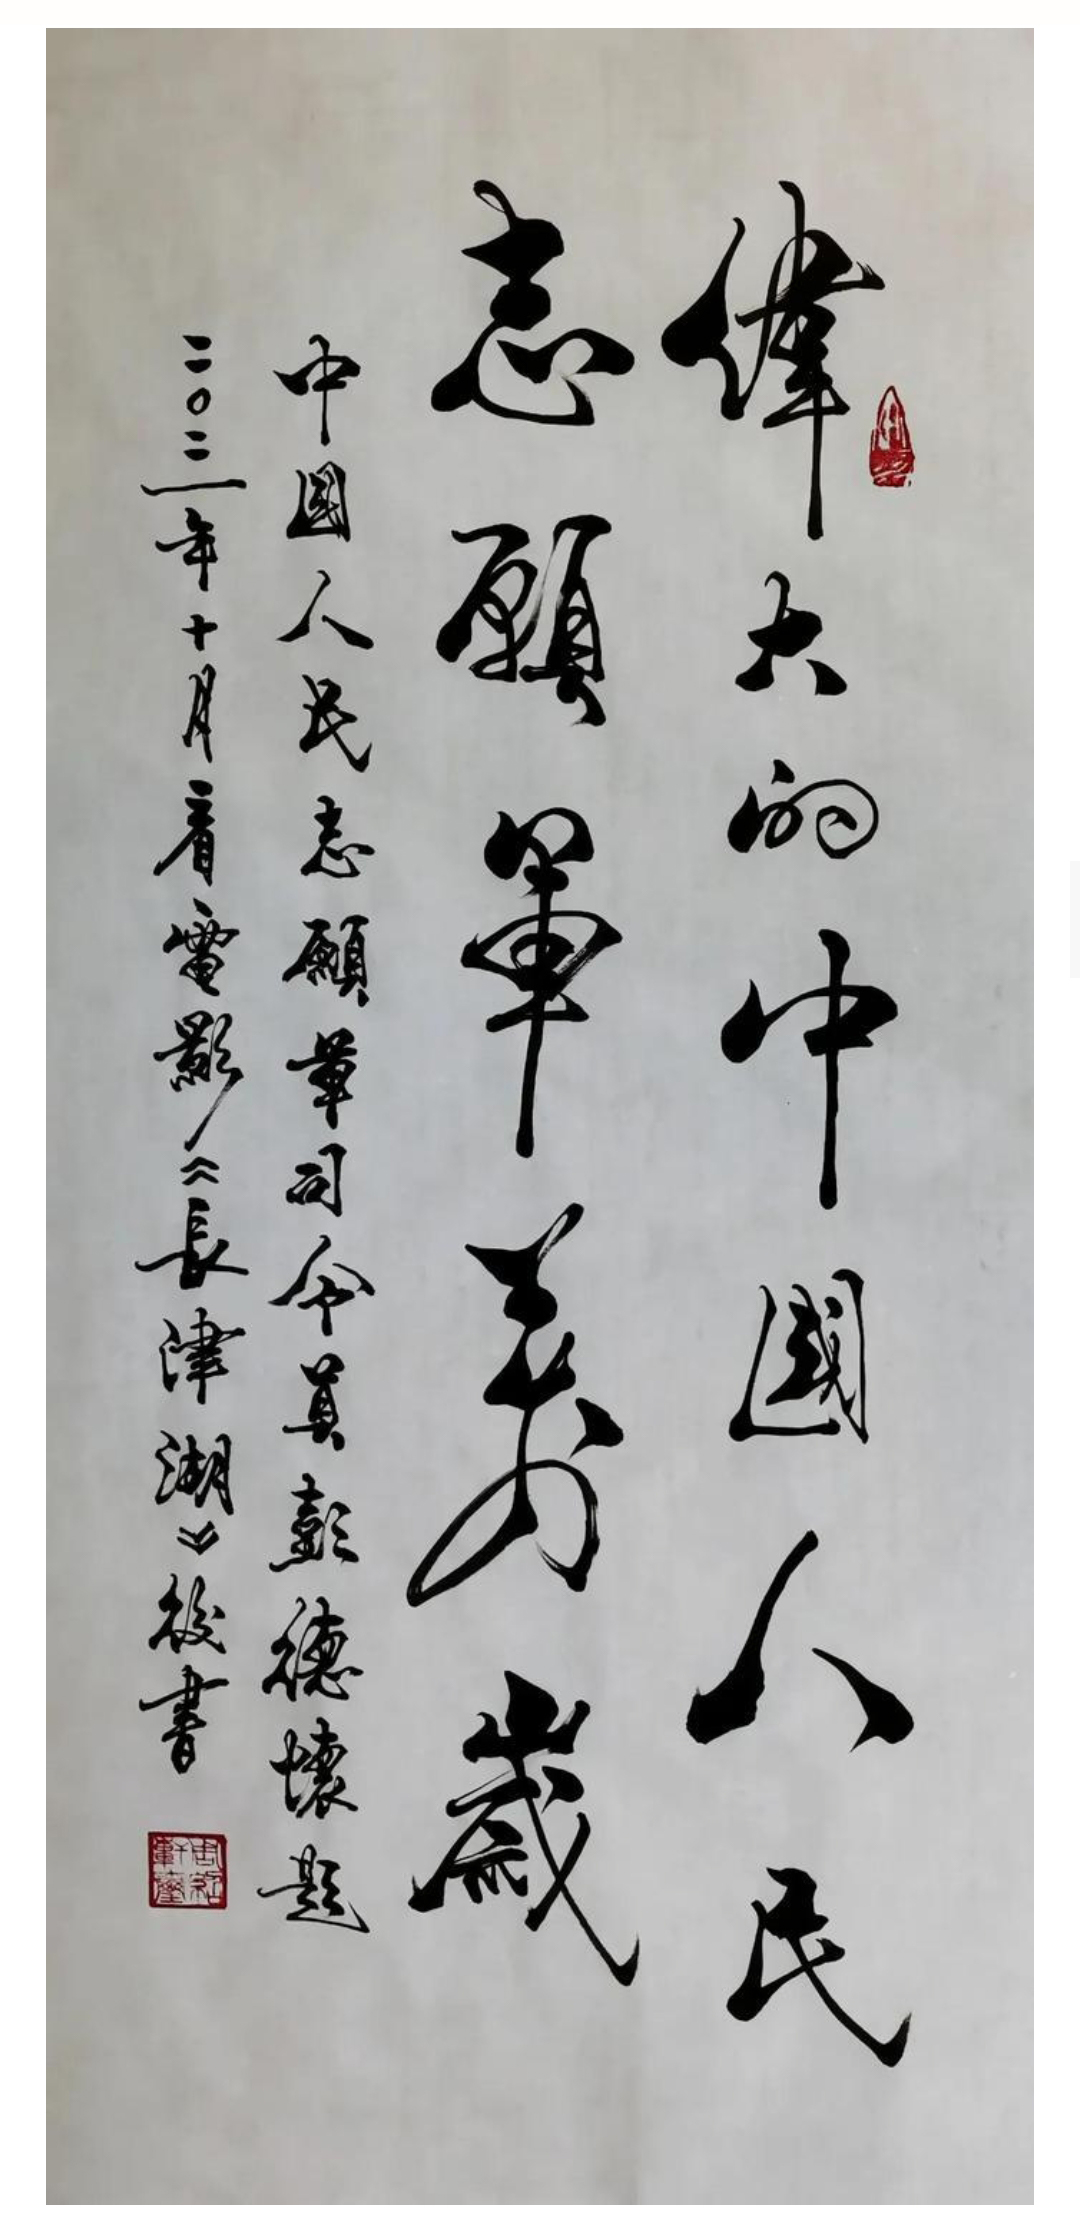 偉大的中國人民
志願軍萬歲
中國人民志願軍司令員彭德懷題
二〇二一年十月看電影《長津湖》後書